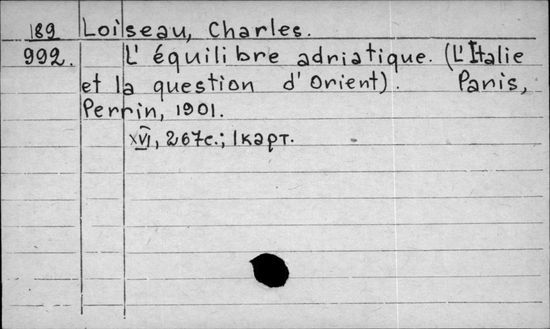 189 Loiseau, Charles.
992. L'équilibre adriatique. (L'Italie
et la question d'Orient). Paris,
Perrin, 1901.
XVI, 267с.; 1карт.